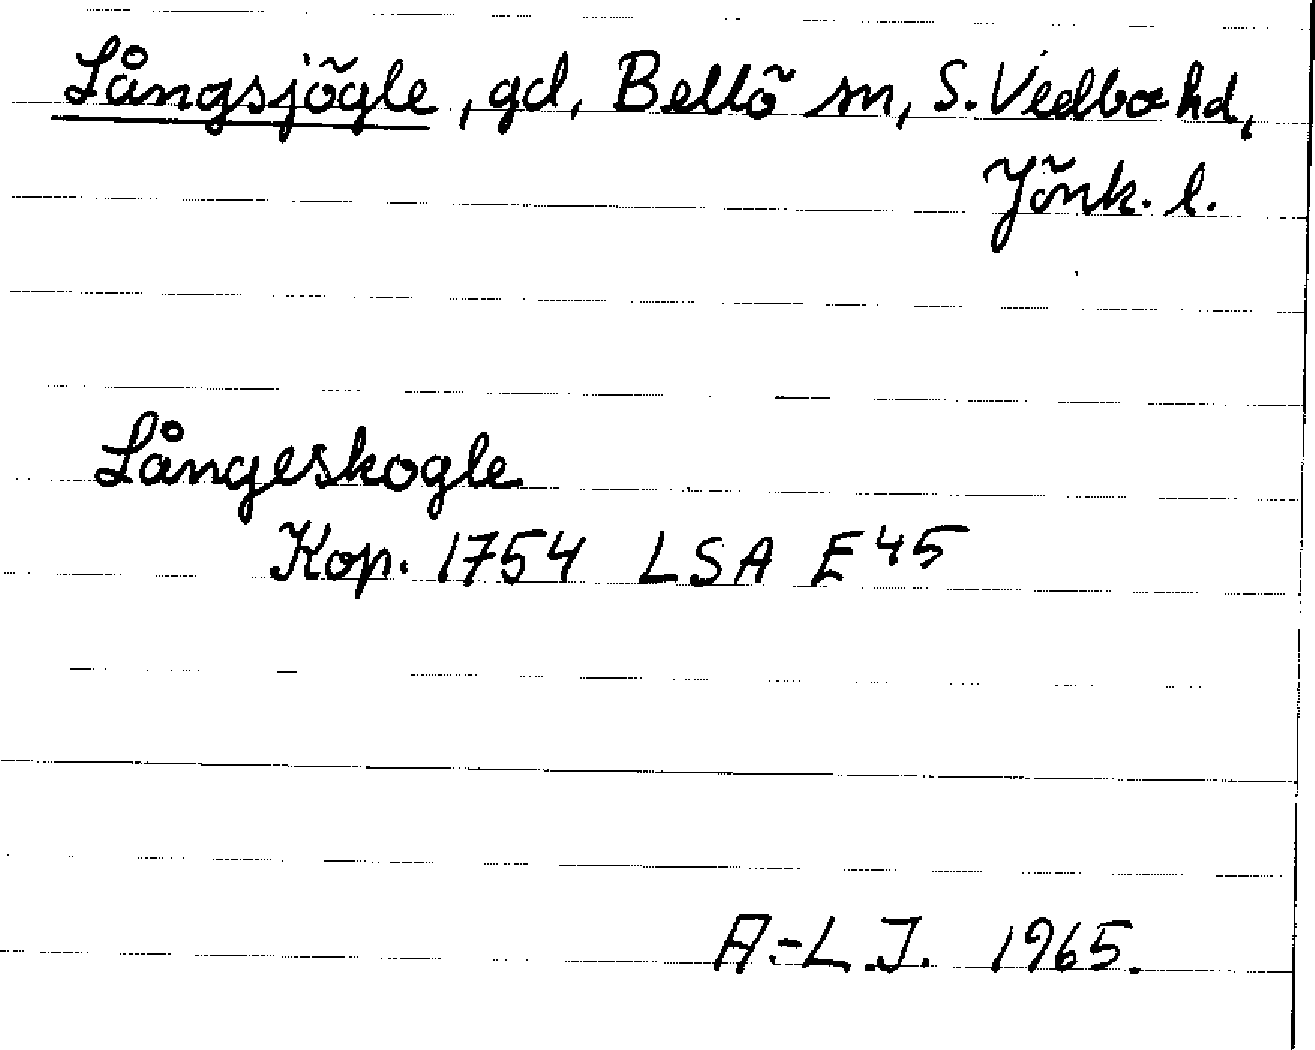 Långsjögle, gd, Bellö sn, S. Vedbo hd,
Jönk. l.
Långeskogle
Kop. 1754 LSA E45
A-L.J. 1965.